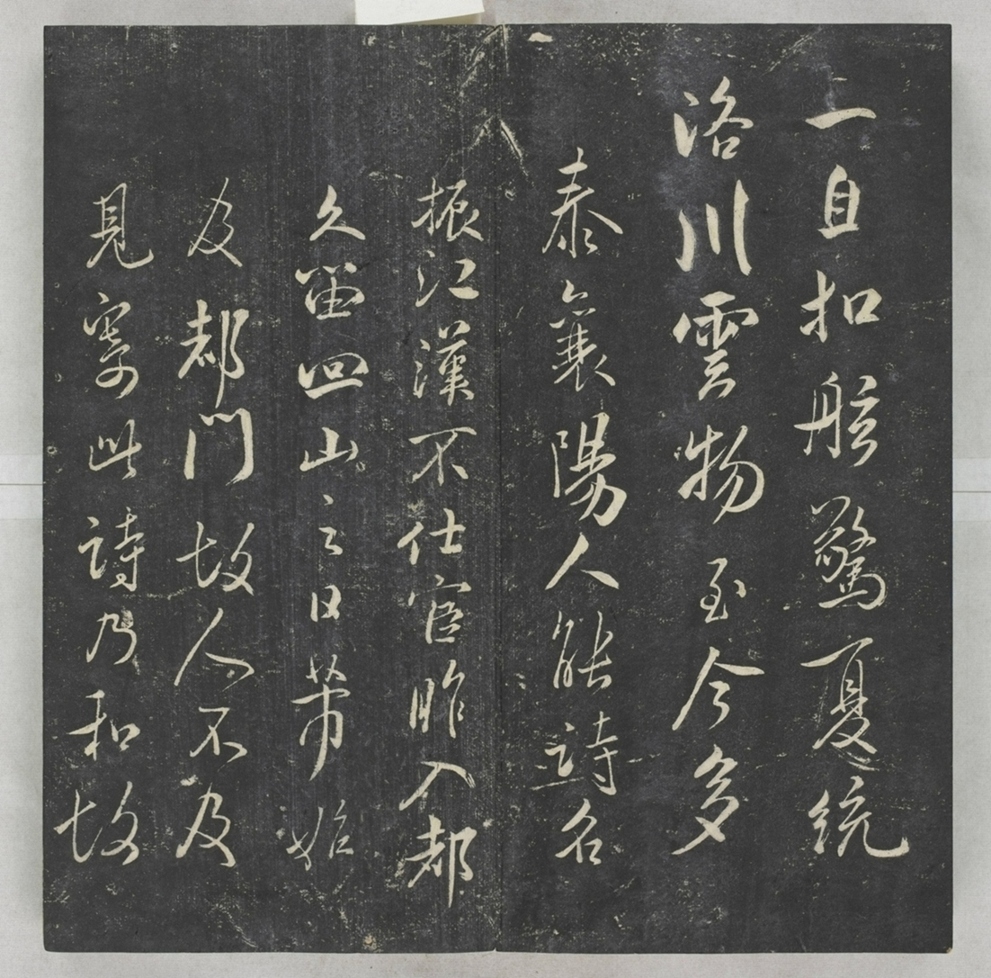 一自扣舷驚夏統
洛川雲物至今多
泰襄陽人能詩名
振江漢不仕宦昨入都
久留回山之日芾始
及都門故人不及
見寄此詩乃和故